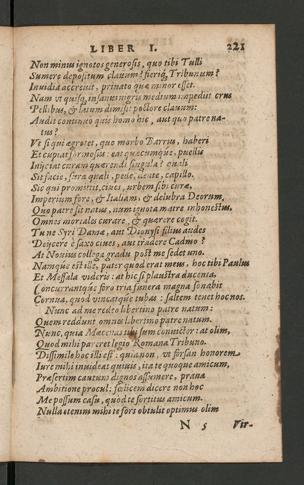 LIBER I. 221
Non minus ignotos generosis, quo tibi Tulli
Sumere depositum clauum? fieriq; Tribunum?
Inuidia accreuit, priuato quæ minor esset.
Nam vt quisq; insanus nigris medium impedijt crus
Pellibus, & latum dimisit pectore clauum:
Audit continuò quis homo hic, aut quo patre na-
tus?
Vt si qui ægrotet, quo morbo Barrus, haberi
Et cupiat formosus: eat quacunque, puellis
Inijciat curam quærendi singula? quali
Sit facie, sura quali, pede, dente, capillo.
Sic qui promittit, ciues, vrbem sibi curæ,
Imperium fore, & Italiam, & delubra Deorum,
Quo patre sit natus, num ignota matre inhonestus,
Omnis mortales curare, & quærere cogit.
Tu ne Syri Damæ, aut Dionysi filius audes
Deijcere è saxo ciues, aut tradere Cadmo?
At Nouius collega gradu post me sedet uno.
Namq; est ille, pater quod erat meus, hoc tibi Paulus
Et Messala videris: at hic si plaustra ducenta,
Concurrantq; foro tria funera magna sonabit
Cornua, quod vincatq; tubas: saltem tenet hoc nos.
Nunc ad me redeo libertino patre natum:
Quem rodunt omnes libertino patre natum.
Nunc, quia Mæcenas tibi sum conuictor: at olim,
Quod mihi pareret legio Romana Tribuno.
Dissimile hoc illi est: quia non, vt forsan honorem
Iure mihi inuideat quiuis, ita te quoque amicum,
Præsertim cautum dignos assumere, praua
Ambitione procul: fœlicem dicere non hoc
Me possum casu, quòd te sortitus amicum.
Nulla etenim mihi te fors obtulit optimus olim
N 5 Vir-